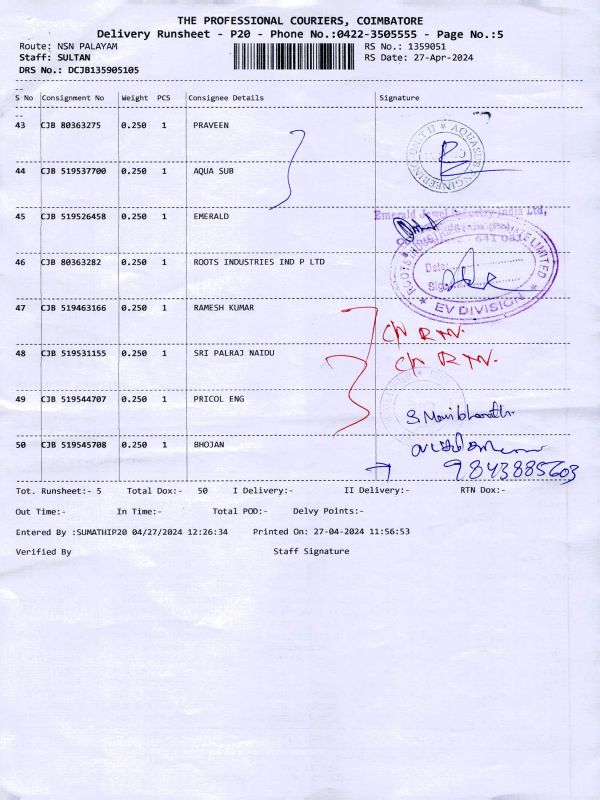 THE PROFESSIONAL COURIERS, COIMBATORE
Delivery Runsheet - P20 - Phone No.:0422-3505555 - Page No.:5
Route: NSN PALAYAM RS No.: 1359051
Staff: SULTAN RS Date: 27-Apr-2024
DRS No.: DCJB135905105
S No Consignment No Weight PCS Consignee Details Signature
43 CJB 80363275 0.250 1 PRAVEEN
44 CJB 519537700 0.250 1 AQUA SUB
AQUASUB ENGINEERING UNIT II
45 CJB 519526458 0.250 1 EMERALD
Emerald Jewel Industry India Ltd,
46 CJB 80363282 0.250 1 ROOTS INDUSTRIES IND P LTD
ROOTS INDUSTRIES INDIA PRIVATE LIMITED
Date:
Sign
★ EV DIVISION ★
47 CJB 519463166 0.250 1 RAMESH KUMAR
48 CJB 519531155 0.250 1 SRI PALRAJ NAIDU
49 CJB 519544707 0.250 1 PRICOL ENG
S. Manibharathi
50 CJB 519545708 0.250 1 BHOJAN
9843885603
Tot. Runsheet:- 5 Total Dox:- 50 I Delivery:- II Delivery:- RTN Dox:-
Out Time:- In Time:- Total POD:- Delvy Points:-
Entered By :SUMATHIP20 04/27/2024 12:26:34 Printed On: 27-04-2024 11:56:53
Verified By Staff Signature